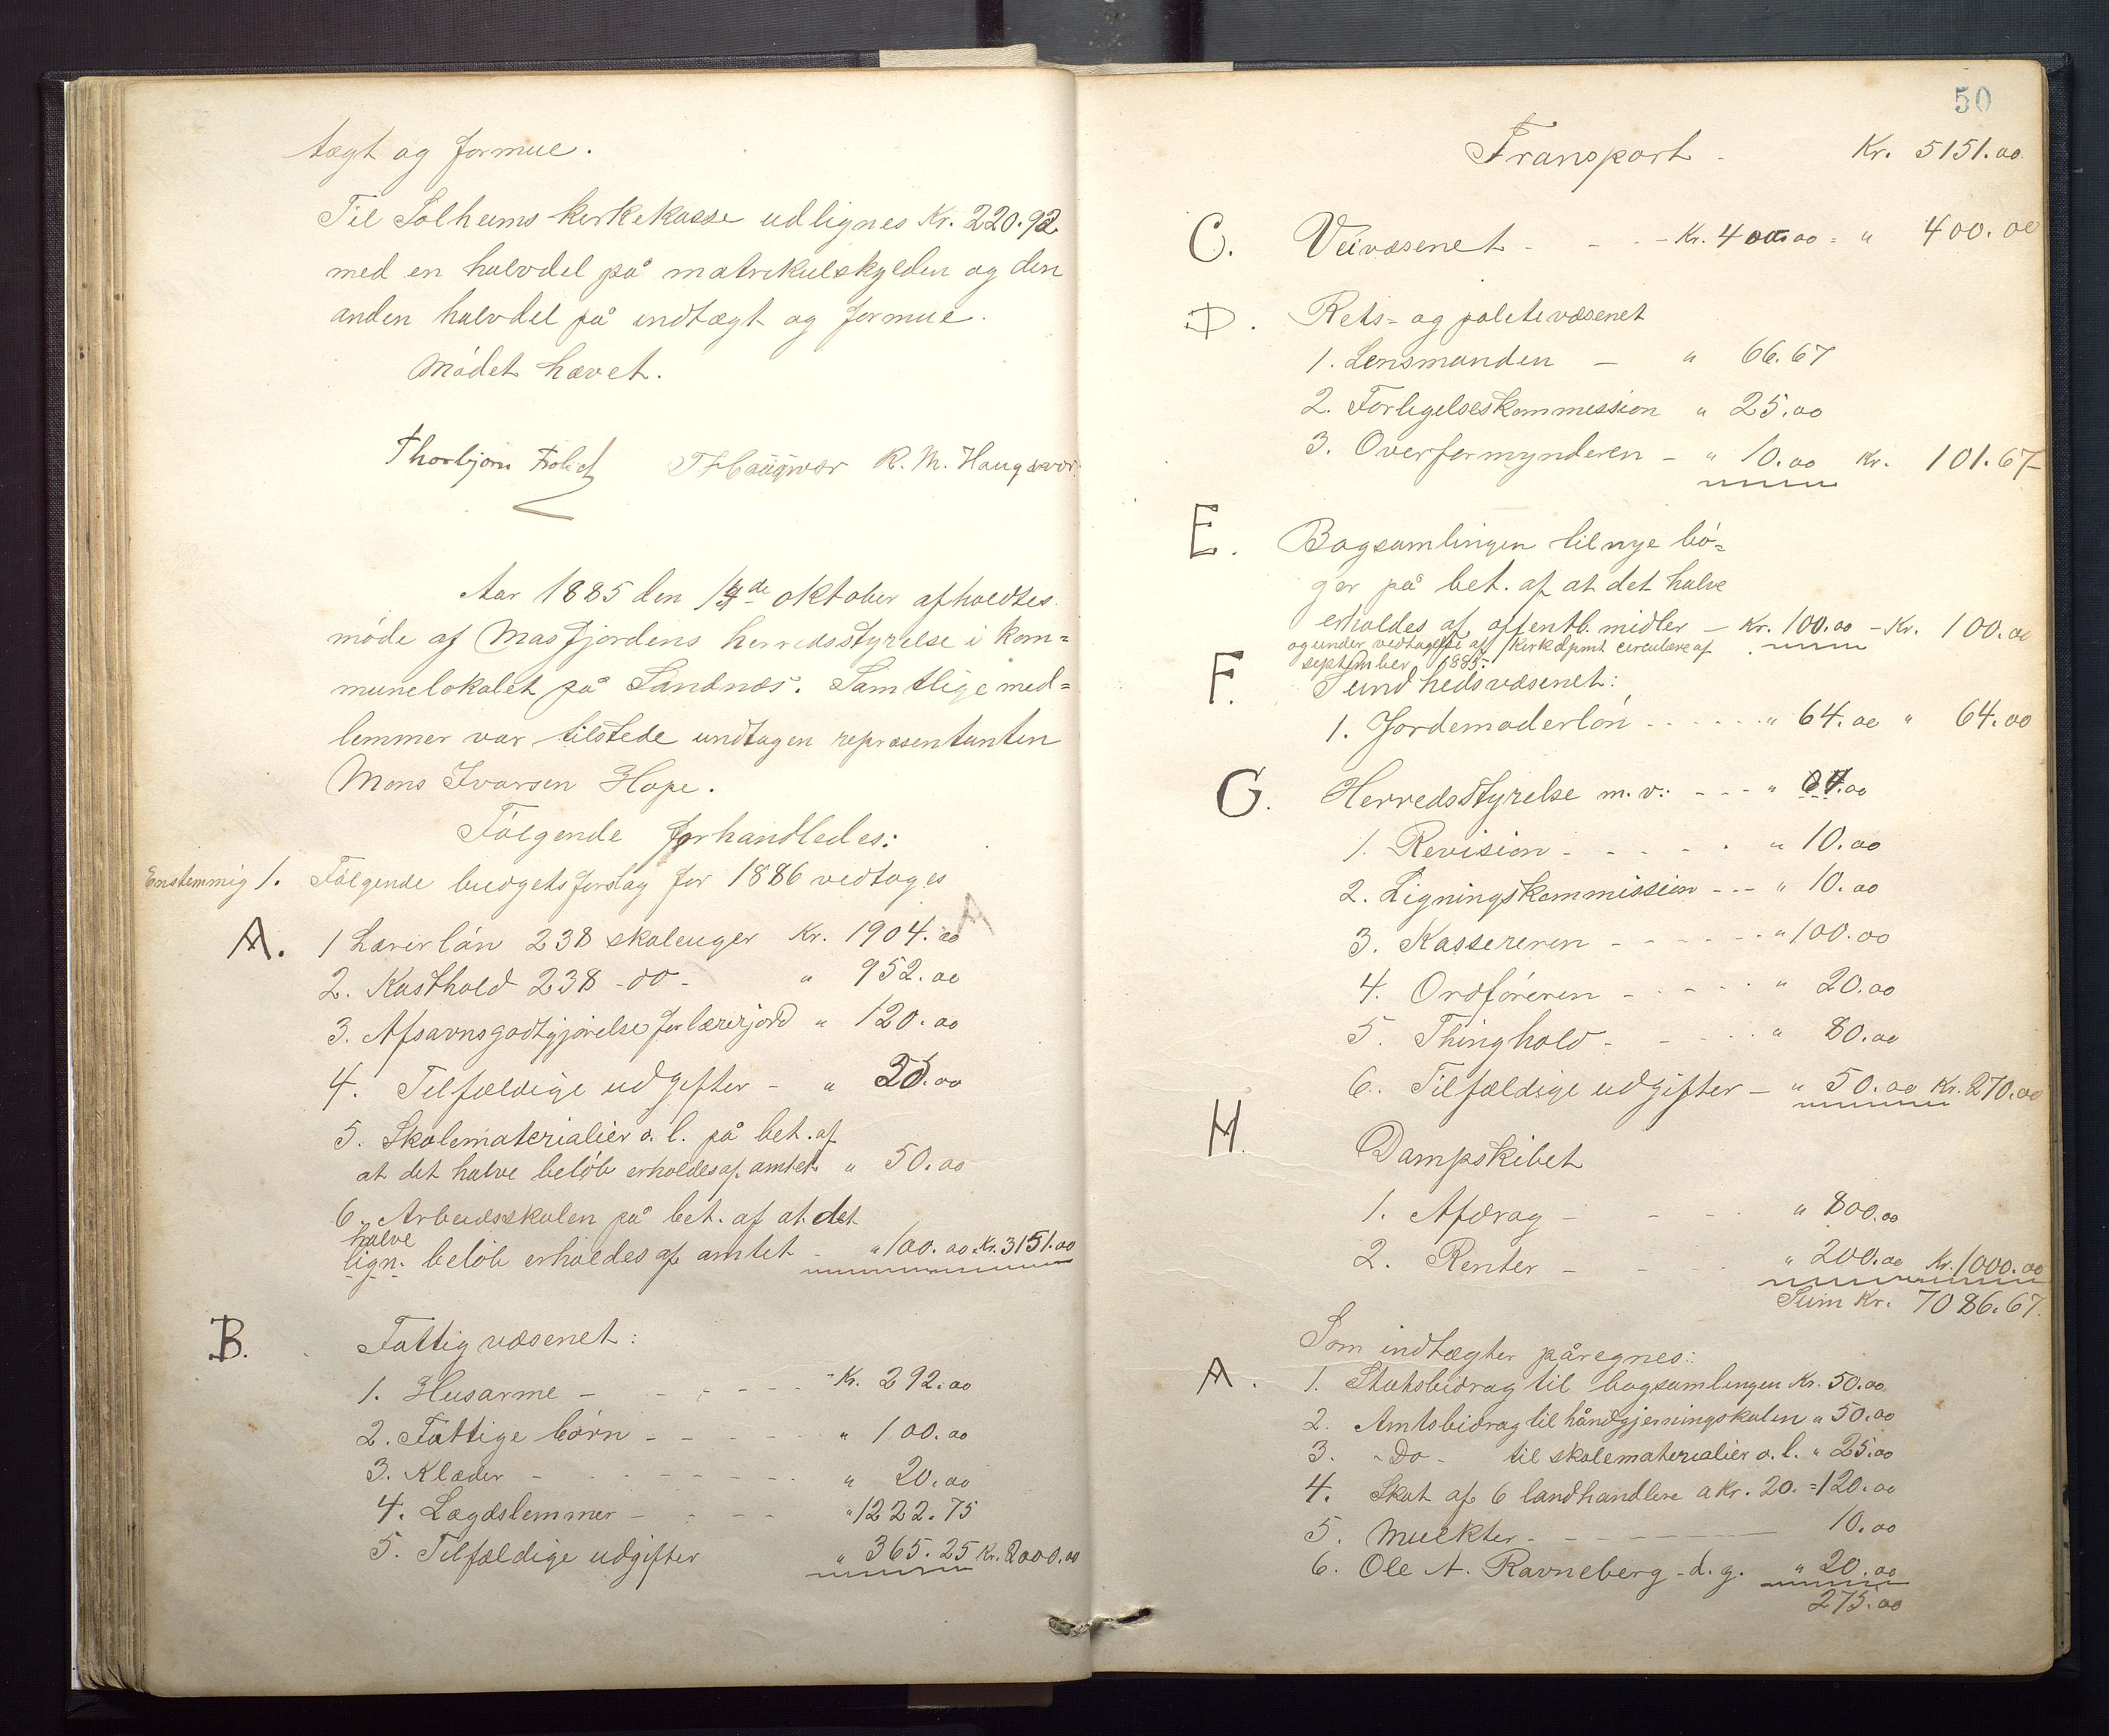 tægt og formue.
Til Solheims kirkekasse udlignes Kr. 220.92
med en halvdel på matrikulskylden og den
anden halvdel på indtægt og formue.
Mödet hævet.
Thorbjörn R. M. Haugsvær.
Aar 1885 den 14de oktober afholdtes
möde af Masfjordens herredsstyrelse i kom=
munelokalet på Sandnæs. Samtlige med=
lemmer var tilstede undtagen repræsentanten
Mons Ivarsen Hope.
Fölgende forhandledes:
Enstemmig 1. Fölgende budgetsforslag for 1886 vedtages
A. 1 Lærerlön 238 skoleuger Kr. 1904.00
2. Kosthold 238 -do- " 952.00
3. Afsavnsgodtgjörelse for lærerjord " 120.00
4. Tilfældige udgifter - " 25.00
5. Skolematerialier o. l. på bet. af
at det halve belöb erholdes af amtet " 50.00
6. Arbeidsskolen på bet. af at det
halve
lign. belöb erholdes af amtet - " 100.00 Kr. 3151.00
B. Fattigvæsenet:
1. Husarme - - - - - Kr. 292.00
2. Fattige börn - - - - " 100.00
3. Klæder - - - - - - " 20.00
4. Lægdslemmer - - - - " 1222.75
5. Tilfældige udgifter " 365.25 Kr. 2000.00
50
Transport - Kr. 5151.00
C. Veivæsenet - - - Kr. 400.00 = " 400.00
D. Rets- og politivæsenet
1. Lensmanden - " 66.67
2. Forligelseskommission " 25.00
3. Overformynderen - " 10.00 Kr. 101.67
E. Bogsamlingen til nye bö=
ger på bet. af at det halve
erholdes af offentl. midler - Kr. 100.00 - Kr. 100.00
og under vedtagelse af Kirkedpmt circulære af
september 1885.
F. Sundhedsvæsenet:
1. Jordemoderlön - - - - - " 64.00 " 64.00
G. Herredsstyrelse m. v.: - - - "
1. Revision - - - - - " 10.00
2. Ligningskommission - - - " 10.00
3. Kassereren - - - - - - " 100.00
4. Ordföreren - - - - - " 20.00
5. Thinghold - - - - - " 80.00
6. Tilfældige udgifter - " 50.00 Kr. 270.00
H. Dampskibet
1. Afdrag - - - - " 800.00
2. Renter - - - " 200.00 Kr. 1000.00
Sum Kr. 7086.67.
Som indtægter påregnes:
A. 1. Statsbidrag til bogsamlingen Kr. 50.00
2. Amtsbidrag til håndgjerningsskolen " 50.00
3. - Do - til skolematerialier o. l. " 25.00
4. Skat af 6 landhandlere a Kr. 20. = 120.00
5. Mulkter - - - - 10.00
6. Ole A. Ravneberg - d. g. " 20.00
275.00